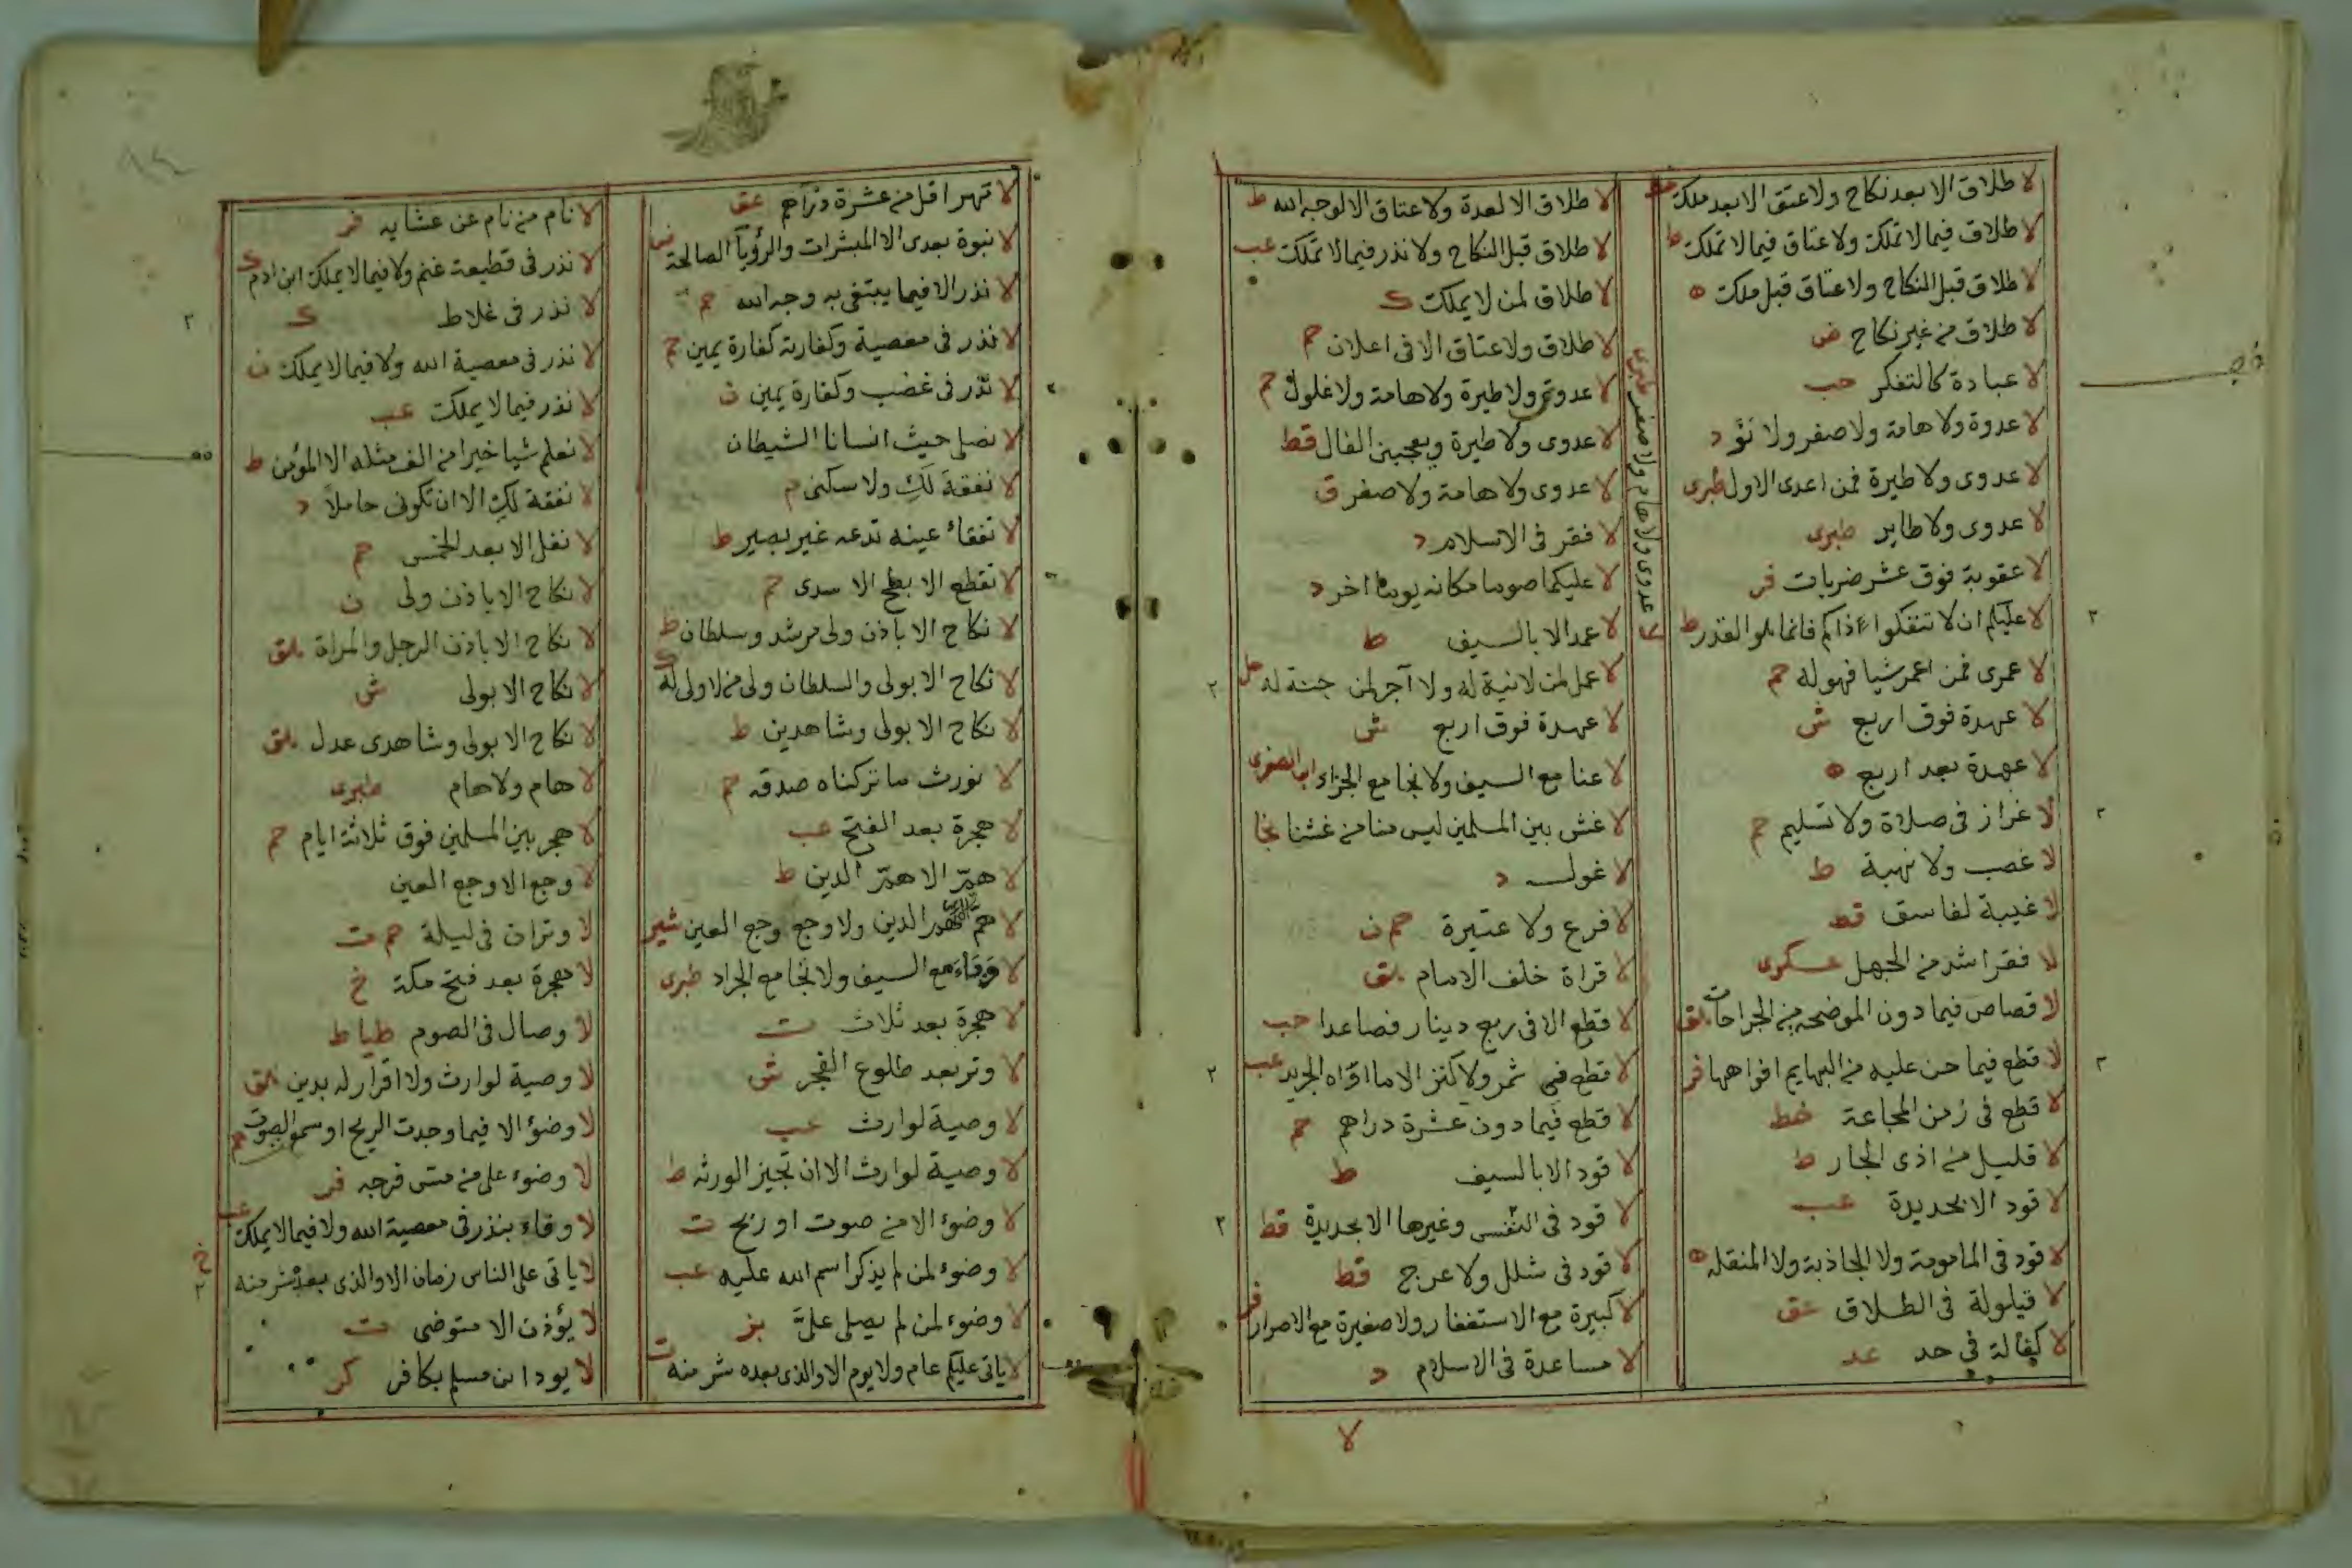 لا طلاق الا بعد نكاح ولا عتق الا بعد ملك
لا طلاق فيما لا تملك ولا عتاق فيما لا تملك ط
لا طلاق قبل النكاح ولا عتاق قبل ملك ه
لا طلاق من غير نكاح ض
لا عبادة كالتفكر حب
لا عدوة ولا هامة ولا صفر ولا نوْ د
لا عدوى ولا طيرة فمن اعدى الاول طبرى
لا عدوى ولا طاير طبرى
لا عقوبة فوق عشر ضربات فر
لا عليكم ان لا تفعلوا ذاكم فانما هو القدر ط
لا عمرى فمن اعمر شيا فهو له حم
لا عهدة فوق اربع ش
لا عهدة بعد اربع ه
لا غرار فى صلاة ولا تسليم حم
لا غصب ولا نهبة ط
لا غيبة لفاسق قط
لا فقر اشد من الجهل عسكرى
لا قصاص فيما دون الموضحه من الجراحات هق
لا قطع فيما حن عليه من البهايم افواهها فر
لا قطع فى زمن المجاعة خط
لا قليل من اذى الجار ط
لا قود الا بحديدة عب
لا قود فى المامومة ولا الجاذبة ولا المنقله ه
لا قيلولة فى الطلاق عق
لا كفالة فى حد عد
لا عدوى ولا هام ولا صفر طبرى
لا طلاق الا لعدة ولا عتاق الا لوجه الله ط
لا طلاق قبل النكاح ولا نذر فيما لا تملك عب
لا طلاق لمن لا يملك ك
لا طلاق ولا عتاق الا فى اعلان حم
لا عدوى ولا طيرة ولا هامة ولا غلول حم
لا عدوى ولا طيرة ويعجبنى الفال قط
لا عدوى ولا هامة ولا صفر ق
لا فقر فى الاسلام د
لا عليكما صوما مكانه يوما اخر د
لا عمد الا بالسيف ط
لا عمل لمن لا نية له ولا آجر لمن حسنة له
لا عهدة فوق اربع ش
لا عنا مع السيف ولا نجا مع الجراد ابن الصغرى
لا غش بين المسلمين ليس منا من غشنا نجا
لا غول د
لا فرع ولا عتيرة حم ن
لا قراة خلف الامام هق
لا قطع الا فى ربع دينار فصاعدا حب
لا قطع فى ثمر ولا كثر الا ما اواه الجرين عب
لا قطع فيما دون عشرة دراهم حم
لا قود الا بالسيف ط
لا قود فى النفس وغيرها الا بحديدة قط
لا قود فى شلل ولا عرج قط
لا كبيرة مع الاستغفار ولا صغيرة مع الاصرار فر
لا مساعدة فى الاسلام د
لا
لا تهر اقل من عشرة دراهم عق
لا نبوة بعدى الا المبشرات والرؤيا الصالحة
لا نذر الا فيما يبتغى به وجه الله حم
لا نذر فى معصية وكفارته كفارة يمين حم
لا نذر فى غضب وكفارة يمين ن
لا نصلى حيث انسانا الشيطان
لا نفقة لكِ ولا سكنى م
لا تفقاء عينه تدعه غير بصير ط
لا تقطع الابطح الا سدى حم
لا نكاح الا باذن ولى مرشد وسلطان ط
لا نكاح الا بولى والسلطان ولى من لا ولى له ك
لا نكاح الا بولى وشاهدين ط
لا نورث ما تركناه صدقه حم
لا هجرة بعد الفتح عب
لا همّ الا همّ الدين ط
لا همّ الدين ولا وجع وجع العين شير
لا وقاء مع السيف ولا نجا مع الجراد طبرى
لا هجرة بعد ثلاث ت
لا وتر بعد طلوع الفجر ش
لا وصية لوارث عب
لا وصية لوارث الا ان تجيز الورثه ط
لا وضوء الا من صوت او ريح ت
لا وضوء لمن لم يذكر اسم الله عليه عب
لا وضوء لمن لم يصلى علىّ بز
لا ياتى عليكم عام ولا يوم الا والذى بعده شر منه ت
لا نام من نام عن عشايه فر
لا نذر فى قطيعة غنم ولا فيما لا يملك ابن ادم ك
لا نذر فى غلاط ك
لا نذر فى معصية الله ولا فيما لا يملك ن
لا نذر فيما لا يملك عب
لا نعلم شيا خيرا من الف مثله الا المؤمن ط
لا نفقة لكِ الا ان تكونى حاملاً د
لا نفل الا بعد الخمس حم
لا نكاح الا باذن ولى ن
لا نكاح الا باذن الرجل والمراة هق
لا نكاح الا بولى ش
لا نكاح الا بولى وشاهدى عدل هق
لا هام ولا هام طبرى
لا هجر بين المسلمين فوق ثلاثة ايام حم
لا وجع الا وجع العين
لا وتران فى ليلة حم ت
لا هجرة بعد فتح مكة خ
لا وصال فى الصوم طيا ط
لا وصية لوارث ولا اقرار له بدين هق
لا وضؤ الا فيما وجدت الريح او سمع الصوت حم
لا وضوء على من مس فرجه فر
لا وفاء بنذر فى معصية الله ولا فيما لا يملك عب
لا ياتى على الناس زمان الا والذى بعد شر منه خ
لا يؤذن الا متوضى ت
لا يودا من مسلم بكافر كر